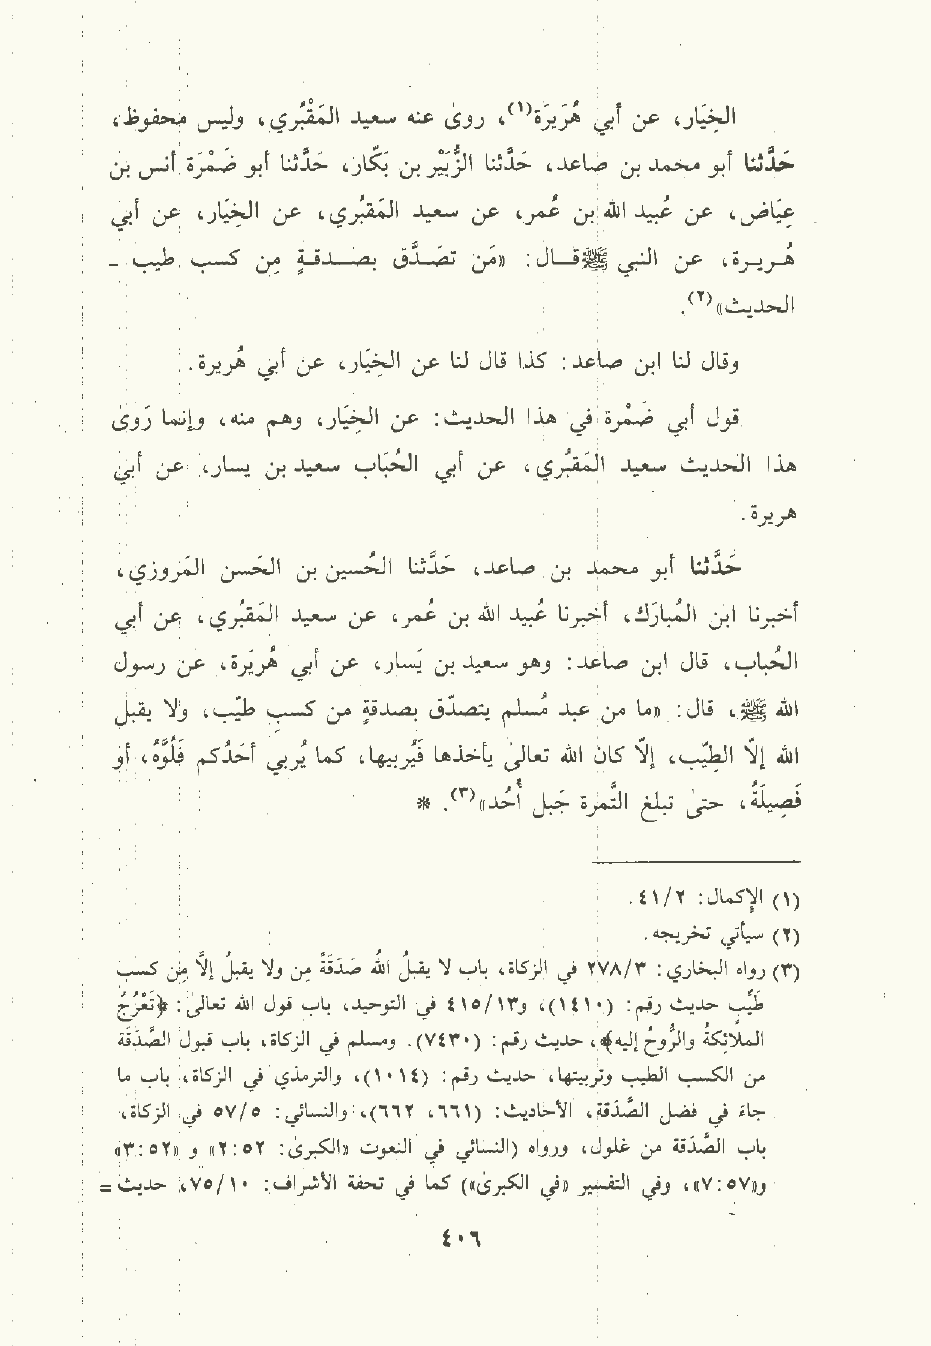 الخِيَار، عن أبي هُرَيرَة(١)، روىٰ عنه سعيد المَقْبُري، وليس محفوظ،
حَدَّثنا أبو محمد بن صاعد، حَدَّثنا الزُّبَيْر بن بَكّار، حَدَّثنا أبو ضَمْرَة أنس بن
عِيَاض، عن عُبيد الله بن عُمر، عن سعيد المَقبُري، عن الخِيَار، عن أبي
هُـريـرة، عن النبي ﷺ قـال: «مَن تصَـدَّق بصـدقـةٍ مِن كسـب طيب ـ
الحديث»(٢).
وقال لنا ابن صاعد: كذا قال لنا عن الخِيَار، عن أبي هُريرة.
قول أبي ضَمْرة في هذا الحديث: عن الخِيَار، وهم منه، وإنما رَوىٰ
هذا الحديث سعيد المَقبُري، عن أبي الحُبَاب سعيد بن يسار، عن أبي
هريرة.
حَدَّثنا أبو محمد بن صاعد، حَدَّثنا الحُسين بن الحَسن المَروزي،
أخبرنا ابن المُبَارَك، أخبرنا عُبيد الله بن عُمر، عن سعيد المَقبُري، عن أبي
الحُباب، قال ابن صاعد: وهو سعيد بن يَسار، عن أبي هُريرَة، عن رسول
الله ﷺ، قال: «ما من عبد مُسلم يتصدّق بصدقةٍ من كسب طيّب، ولا يقبل
الله إلّا الطِيّب، إلّا كان الله تعالىٰ يأخذها فيُربيها، كما يُربي أحَدُكم فَلُوَّهُ، أو
فَصِيلَهُ، حتىٰ تبلغ التَّمرة جَبل أُحُد»(٣). *
(١) الإكمال: ٢/ ٤١.
(٢) سيأتي تخريجه.
(٣) رواه البخاري: ٣/ ٢٧٨ في الزكاة، باب لا يقبل اللهُ صَدَقَةً مِن ولا يقبلُ إلاَّ مِن كسب
طَيِّبٍ حديث رقم: (١٤١٠)، و١٣/ ٤١٥ في التوحيد، باب قول الله تعالىٰ: ﴿تَعْرُجُ
الملاَئِكةُ والرُّوحُ إليه﴾، حديث رقم: (٧٤٣٠). ومسلم في الزكاة، باب قبول الصَّدَقة
من الكسب الطيب وتربيتها، حديث رقم: (١٠١٤)، والترمذي في الزكاة، باب ما
جاء في فضل الصَّدقة، الأحاديث: (٦٦١، ٦٦٢)، والنسائي: ٥/ ٥٧ في الزكاة،
باب الصَّدقة من غلول، ورواه (النسائي في النعوت «الكبرىٰ: ٥٢: ٢» و «٥٢: ٣»
و«٥٧: ٧»، وفي التفسير «في الكبرىٰ») كما في تحفة الأشراف: ١٠/ ٧٥، حديث =
٤٠٦